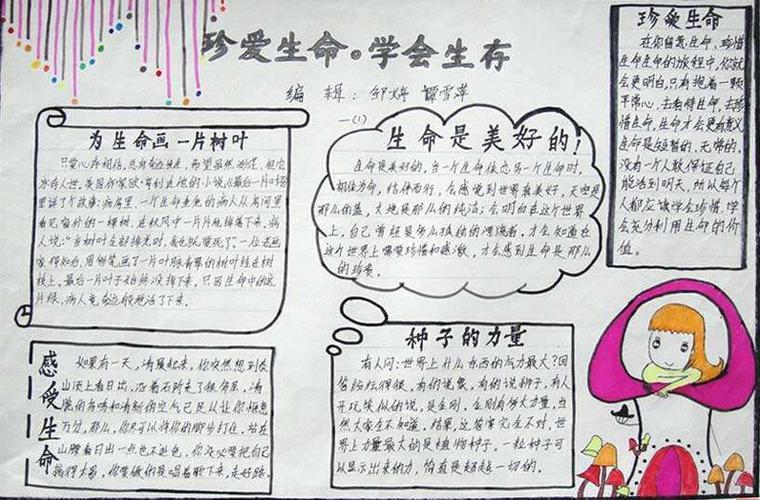 珍爱生命。学会生存
编 辑：邹婷 谭雪萍
一(1)
为生命画一片树叶
只要心存相信，总有奇迹发生，希望虽然渺茫，但它
永存人世。美国作家欧·亨利在他的小说《最后一片叶》
里讲了个故事：病房里，一个生命垂危的病人从房间里
看见窗外的一棵树，在秋风中一片片地掉落下来。病
人说：“当树叶全部掉光时，我也就要死了。”一位老画
家得知后，用彩笔画了一片叶脉青翠的树叶挂在树
枝上。最后一片叶子始终没掉下来。只因生命中的这
片绿，病人竟奇迹般地活了下来。
生命是美好的！
生命是美好的，当一个生命依恋另一个生命时，
相依为命，结伴而行，会感觉到世界真美好，天空是
那么的蓝，大地是那么的纯洁；会明白在这个世界
上，自己曾经是多么孤独的漂流者，才会知道在
这个世界上哪要珍惜和感激，才会感到生命是那么
的珍贵。
珍爱生命
在你留意生命、珍惜
生命生命的旅程中，你就
会更明白，只有抱着一颗
平常心，去看待生命，去珍
惜生命，生命才会更有意义
生命是短暂的，无常的。
没有一个人敢保证自己
能活到明天，所以每个
人都应该学会珍惜，学
会充分利用生命的价
值。
感受生命
如果有一天，清晨起来，你突然想到泰
山顶上看日出，沿着石阶来了很多层，清
脆的鸟鸣和清新的空气已足以让你惬意
万分，那么，你可以将你的脚步打住，站在
山腰看日出一点也不逊色，你没必要把自己
搞得太累，你要做的是唱着歌下来，走好路。
种子的力量
有人问：世界上什么东西的气力最大？回
答纷纭得很，有的说象，有的说狮子，有人
开玩笑似的说，是金刚，金刚有多大力量，当
然大家全不知道。结果，这答案完全不对，世
界上力量最大的是植物种子。一粒种子可
以显示出来的力，简直是超越一切的。